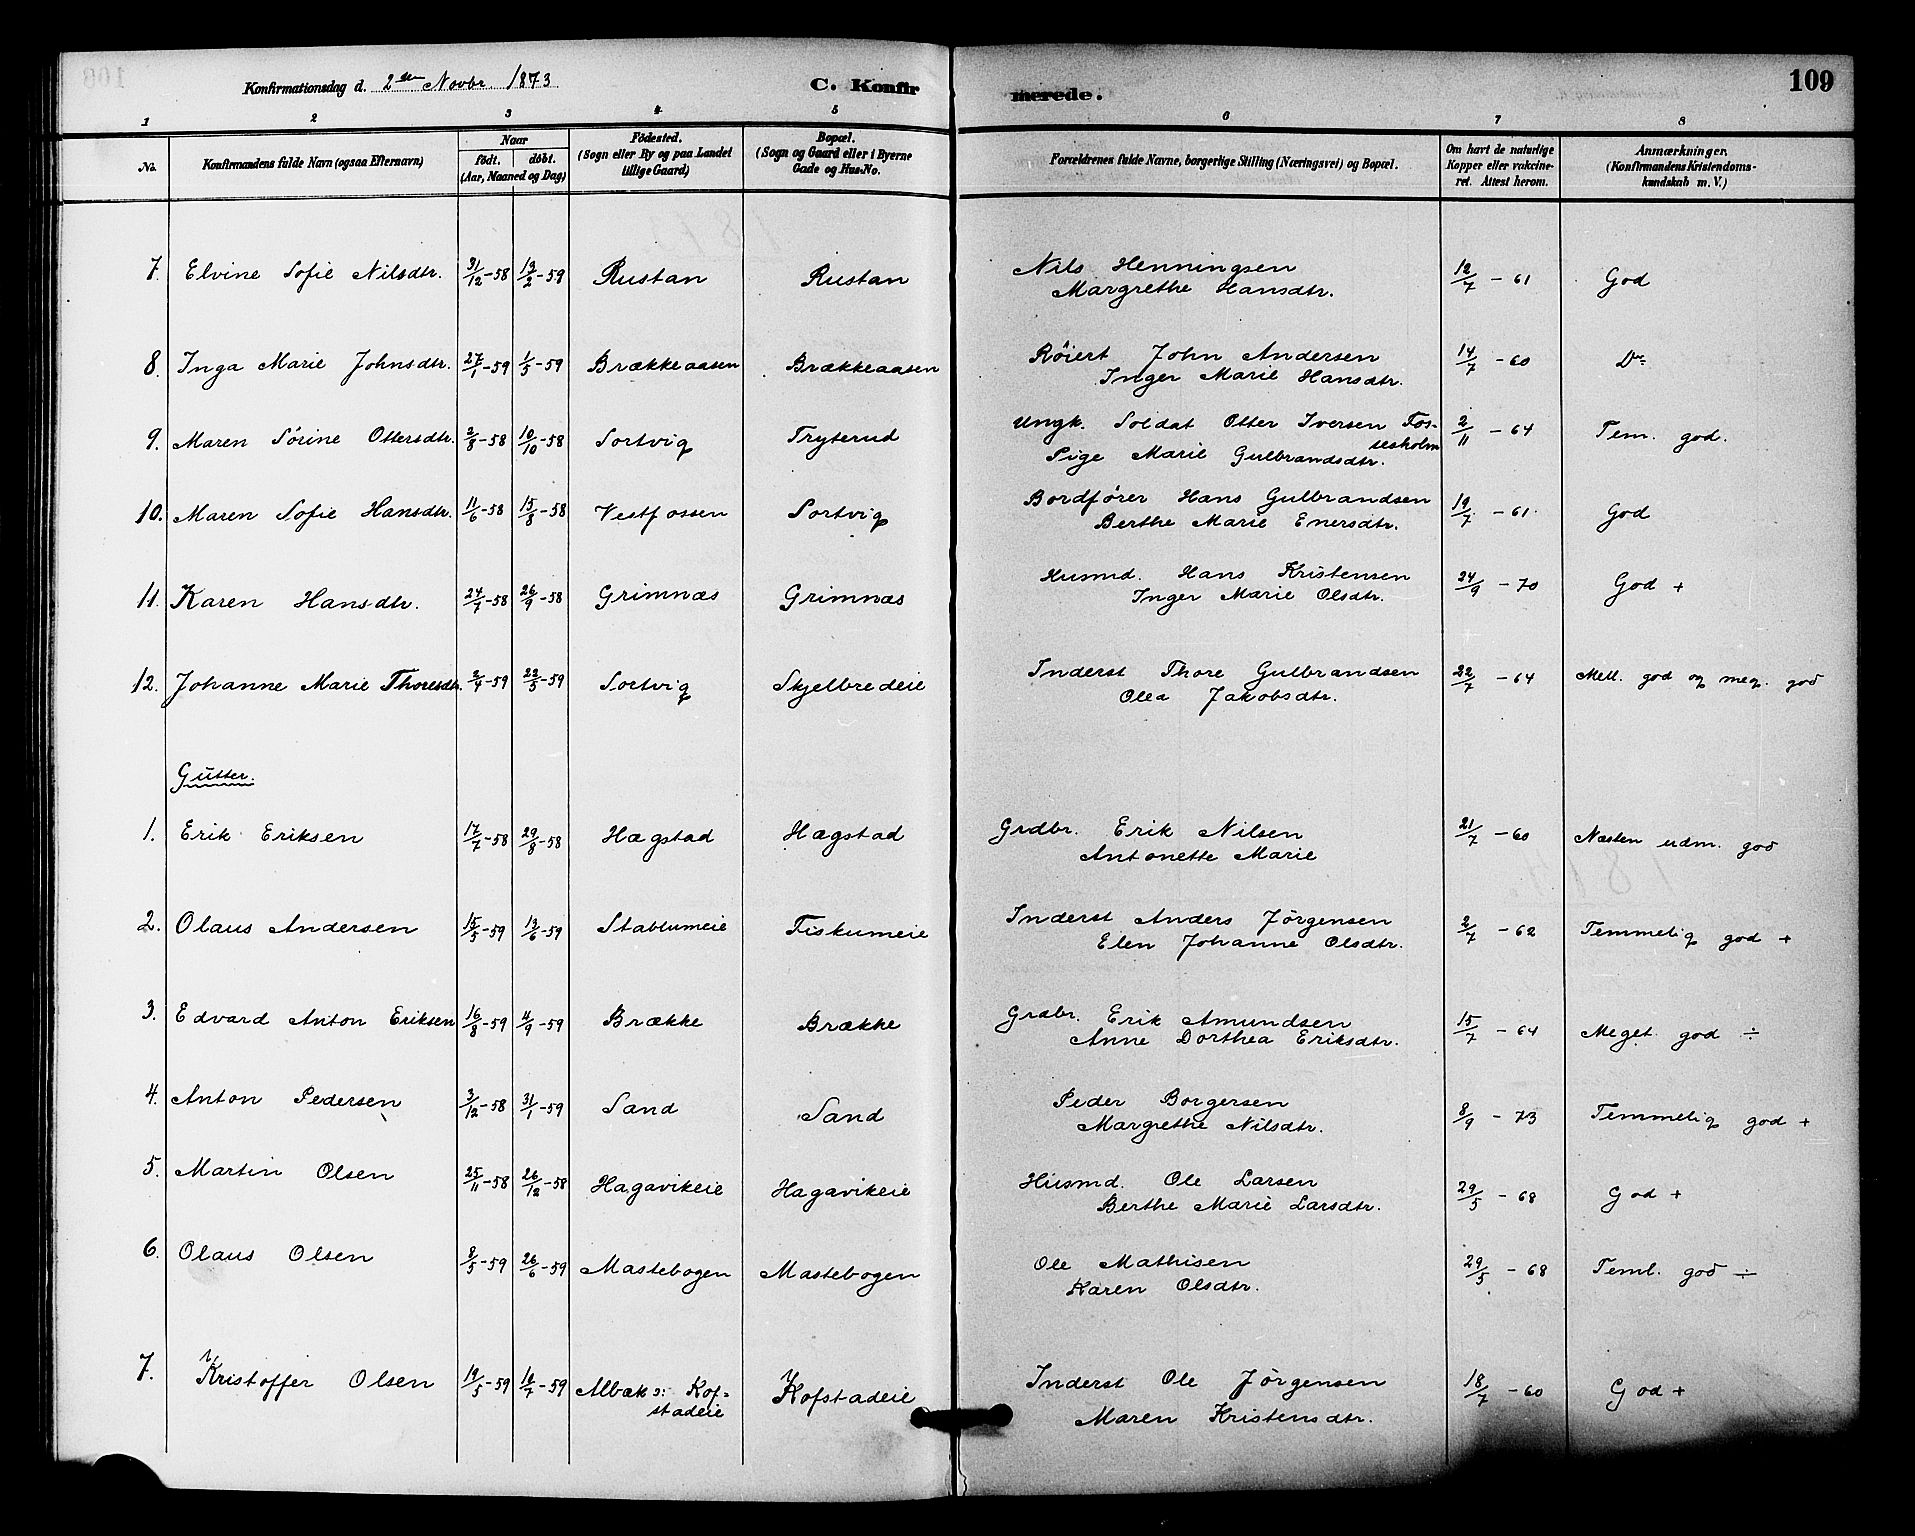 Konfirmationsdag d. 2den Novbr. 1873 C. Konfirmerede. 109
1 2 3 4 5 6 7 8
No. Konfirmandens fulde Navn (ogsaa Efternavn) Naar födt. döbt. (Aar, Maaned og Dag) Födested. (Sogn eller By og paa Landet tillige Gaard) Bopæl. (Sogn og Gaard eller i Byerne Gade og Hus-No. Forældrenes fulde Navne, borgerlige Stilling (Næringsvei) og Bopæl. Om havt de naturlige Kopper eller vakcineret. Attest herom. Anmærkninger. (Konfirmandens Kristendomskundskab m. V.)
7. Elvine Sofie Nilsdtr. 31/12-58 13/2-59 Rustan Rustan Nils Henningsen 12/7-61 God
Margrethe Hansdtr.
8. Inga Marie Johnsdtr. 27/1-59 1/5-59 Brækkeaasen Brækkeaasen Röiert John Andersen 14/7-60 Do
Inger Marie Hansdtr.
9. Maren Sörine Ottersdtr. 2/8-58 10/10-58 Sortvig Tryterud Ungk. Soldat Otter Iversen Fossesholm 2/11-64 Tem. god.
Pige Marie Gulbrandsdtr.
10. Maren Sofie Hansdtr. 11/6-58 15/8-58 Vestfossen Sortvig Bordförer Hans Gulbrandsen 19/7-61 God
Berthe Marie Enersdtr.
11. Karen Hansdtr. 24/7-58 26/9-58 Grimnæs Grimnæs Husmd. Hans Kristensen 24/9-70 God +
Inger Marie Olsdtr.
12. Johanne Marie Thoresdtr. 2/4-59 22/5-59 Sortvig Skjelbredeie Inderst Thore Gulbrandsen 22/7-64 Mell. god og meg. god
Olea Jakobsdtr.
Gutter.
1. Erik Eriksen 17/7-58 29/8-58 Hægstad Hægstad Grdbr. Erik Nilsen 21/7-60 Næsten udm. god
Antonette Marie
2. Olaus Andersen 15/5-59 13/6-59 Stablumeie Fiskumeie Inderst Anders Jörgensen 2/7-62 Temmelig god +
Elen Johanne Olsdtr.
3. Edvard Anton Eriksen 16/8-59 4/9-59 Brække Brække Grdbr. Erik Amundsen 15/7-64 Meget god ÷
Anne Dorthea Eriksdtr.
4. Anton Pedersen 3/12-58 31/1-59 Sand Sand Peder Borgersen 8/9-73 Temmelig god +
Margrethe Nilsdtr.
5. Martin Olsen 25/11-58 26/12-58 Hagavikeie Hagavikeie Husmd. Ole Larsen 29/5-68 God +
Berthe Marie Larsdtr.
6. Olaus Olsen 8/5-59 26/6-59 Mastebogen Mastebogen Ole Mathisen 29/5-68 Teml. god ÷
Karen Olsdtr.
7. Kristoffer Olsen 19/5-59 10/7-59 Albæk ɔ: Kofstadeie Kofstadeie Inderst Ole Jörgensen 18/7-60 God +
Maren Kristensdtr.